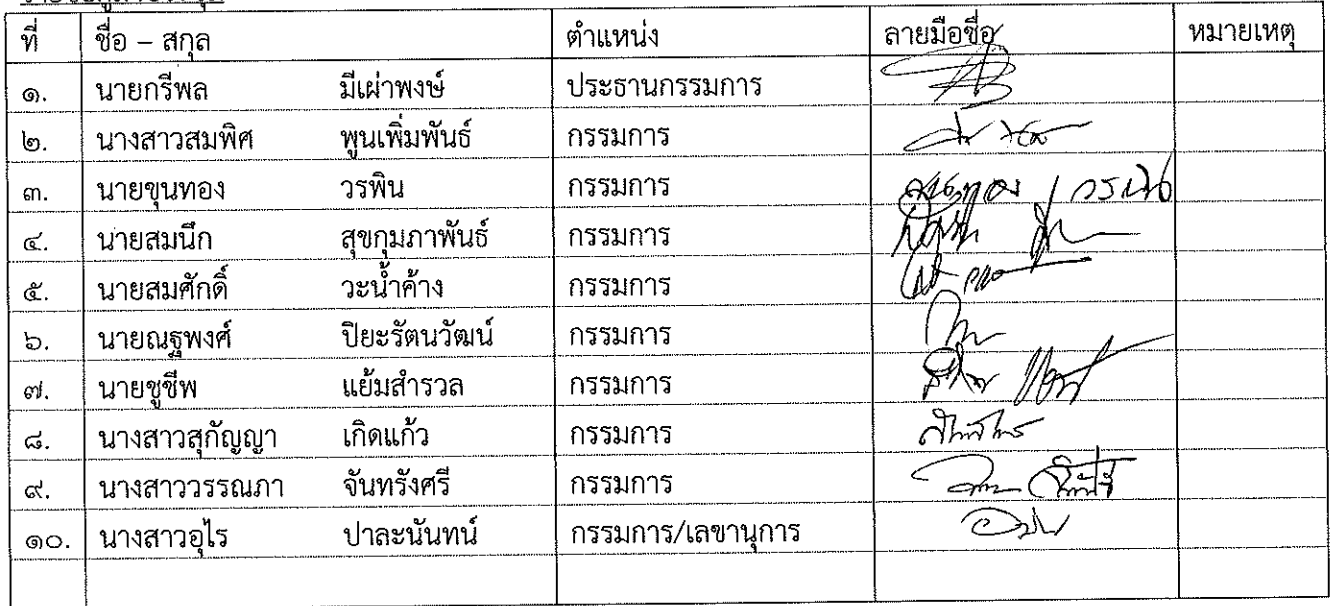 ที่ ชื่อ – สกุล ตำแหน่ง ลายมือชื่อ หมายเหตุ
๑. นายกรีพล มีเผ่าพงษ์ ประธานกรรมการ
๒. นางสาวสมพิศ พูนเพิ่มพันธ์ กรรมการ
๓. นายขุนทอง วรพิน กรรมการ ขุนทอง วรพิน
๔. นายสมนึก สุขกุมภาพันธ์ กรรมการ
๕. นายสมศักดิ์ วะน้ำค้าง กรรมการ
๖. นายณฐพงศ์ ปิยะรัตนวัฒน์ กรรมการ
๗. นายชูชีพ แย้มสำรวล กรรมการ
๘. นางสาวสุกัญญา เกิดแก้ว กรรมการ
๙. นางสาววรรณภา จันทรังศรี กรรมการ
๑๐. นางสาวอุไร ปาละนันทน์ กรรมการ/เลขานุการ